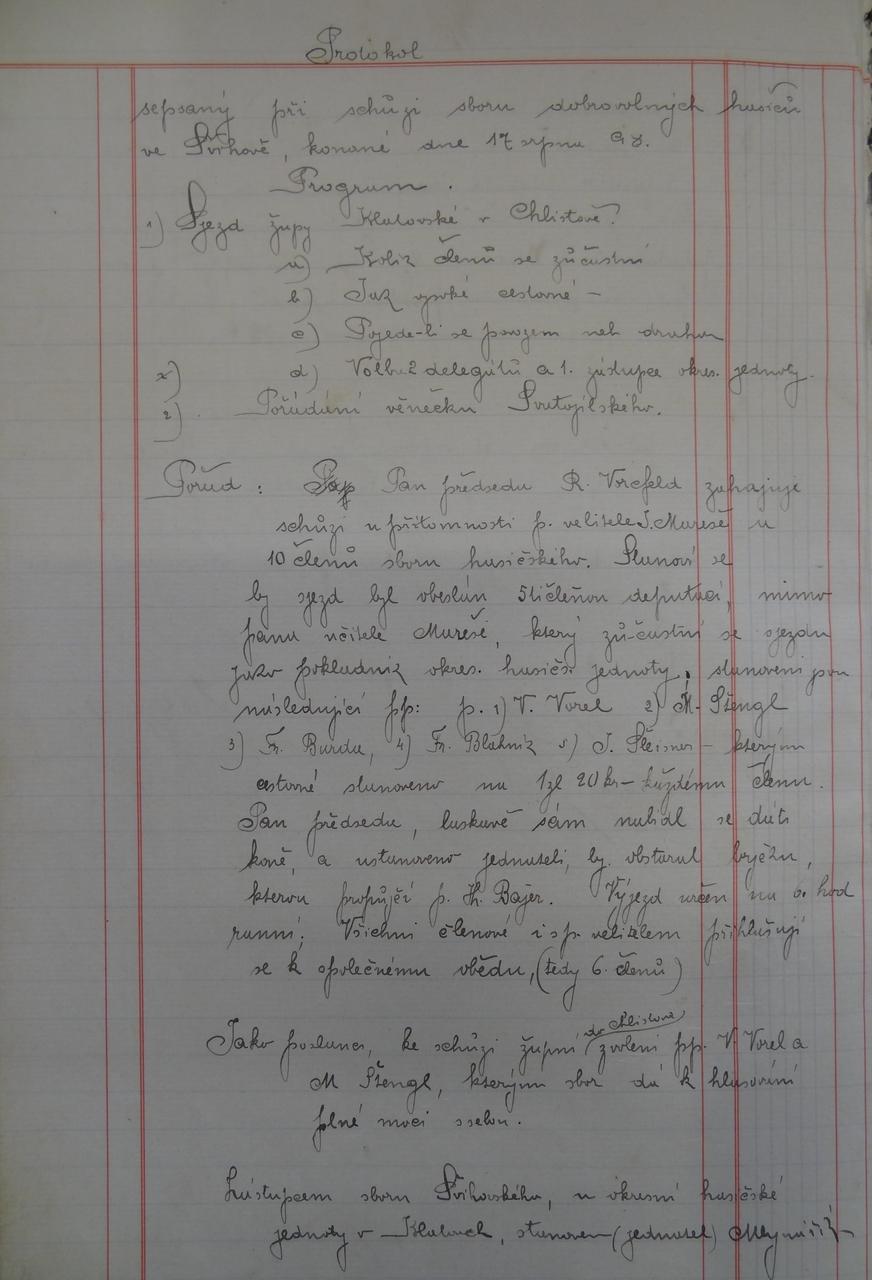 Protokol
sepsaný při schůzi sboru dobrovolných hasičů
ve Švihově, konané dne 17 srpna
Program.
1) Sjezd župy Klatovské v Chlistově?
a) Kolik členů se zůčastní
b) Jak vysoké cestovné –
c) Pojede-li se povozem neb drahou
x) d) Volbu 2 delegátů a 1. zástupce okres. jednoty.
2). Pořádání věnečku Svatojilského.
Pořad: Pan předseda R. zahajuje
schůzi u přítomnosti p. velitele J. Mareše a
10 členů sboru hasičského. Stanoví se
by sjezd byl obeslán 5tičleňou deputací, mimo
pana učitele Mareše, který zů-častní se sjezdu
jako pokladník okres. hasičs. jednoty, stanoveni jsou
následující pp: p. 1) V. Vorel 2) M. Štengl
3) Fr. Burda, 4) Fr. Blahník 5) J. – kterým
cestovné stanoveno na 1zl 20 kr – každému členu.
Pan předseda, laskavě sám nabídl se dáti
koně, a ustanoveno jednateli, by obstaral bryčku,
kterou propůjčí p. Th. Bajer. Výjezd určen na 6. hod
ranní; Všichni členové i s p. velitelem přihlašují
se k společnému obědu, (tedy 6. členů)
do Chlistova
Jako poslanci, ke schůzi župní zvoleni pp. V. Vorel a
M Štengl, kterým sbor dá k hlasování
plné moci ssebou.
Zástupcem sboru Švihovského, u okresní hasičské
jednoty v Klatovech, stanoven (jednatel) Mlynařík